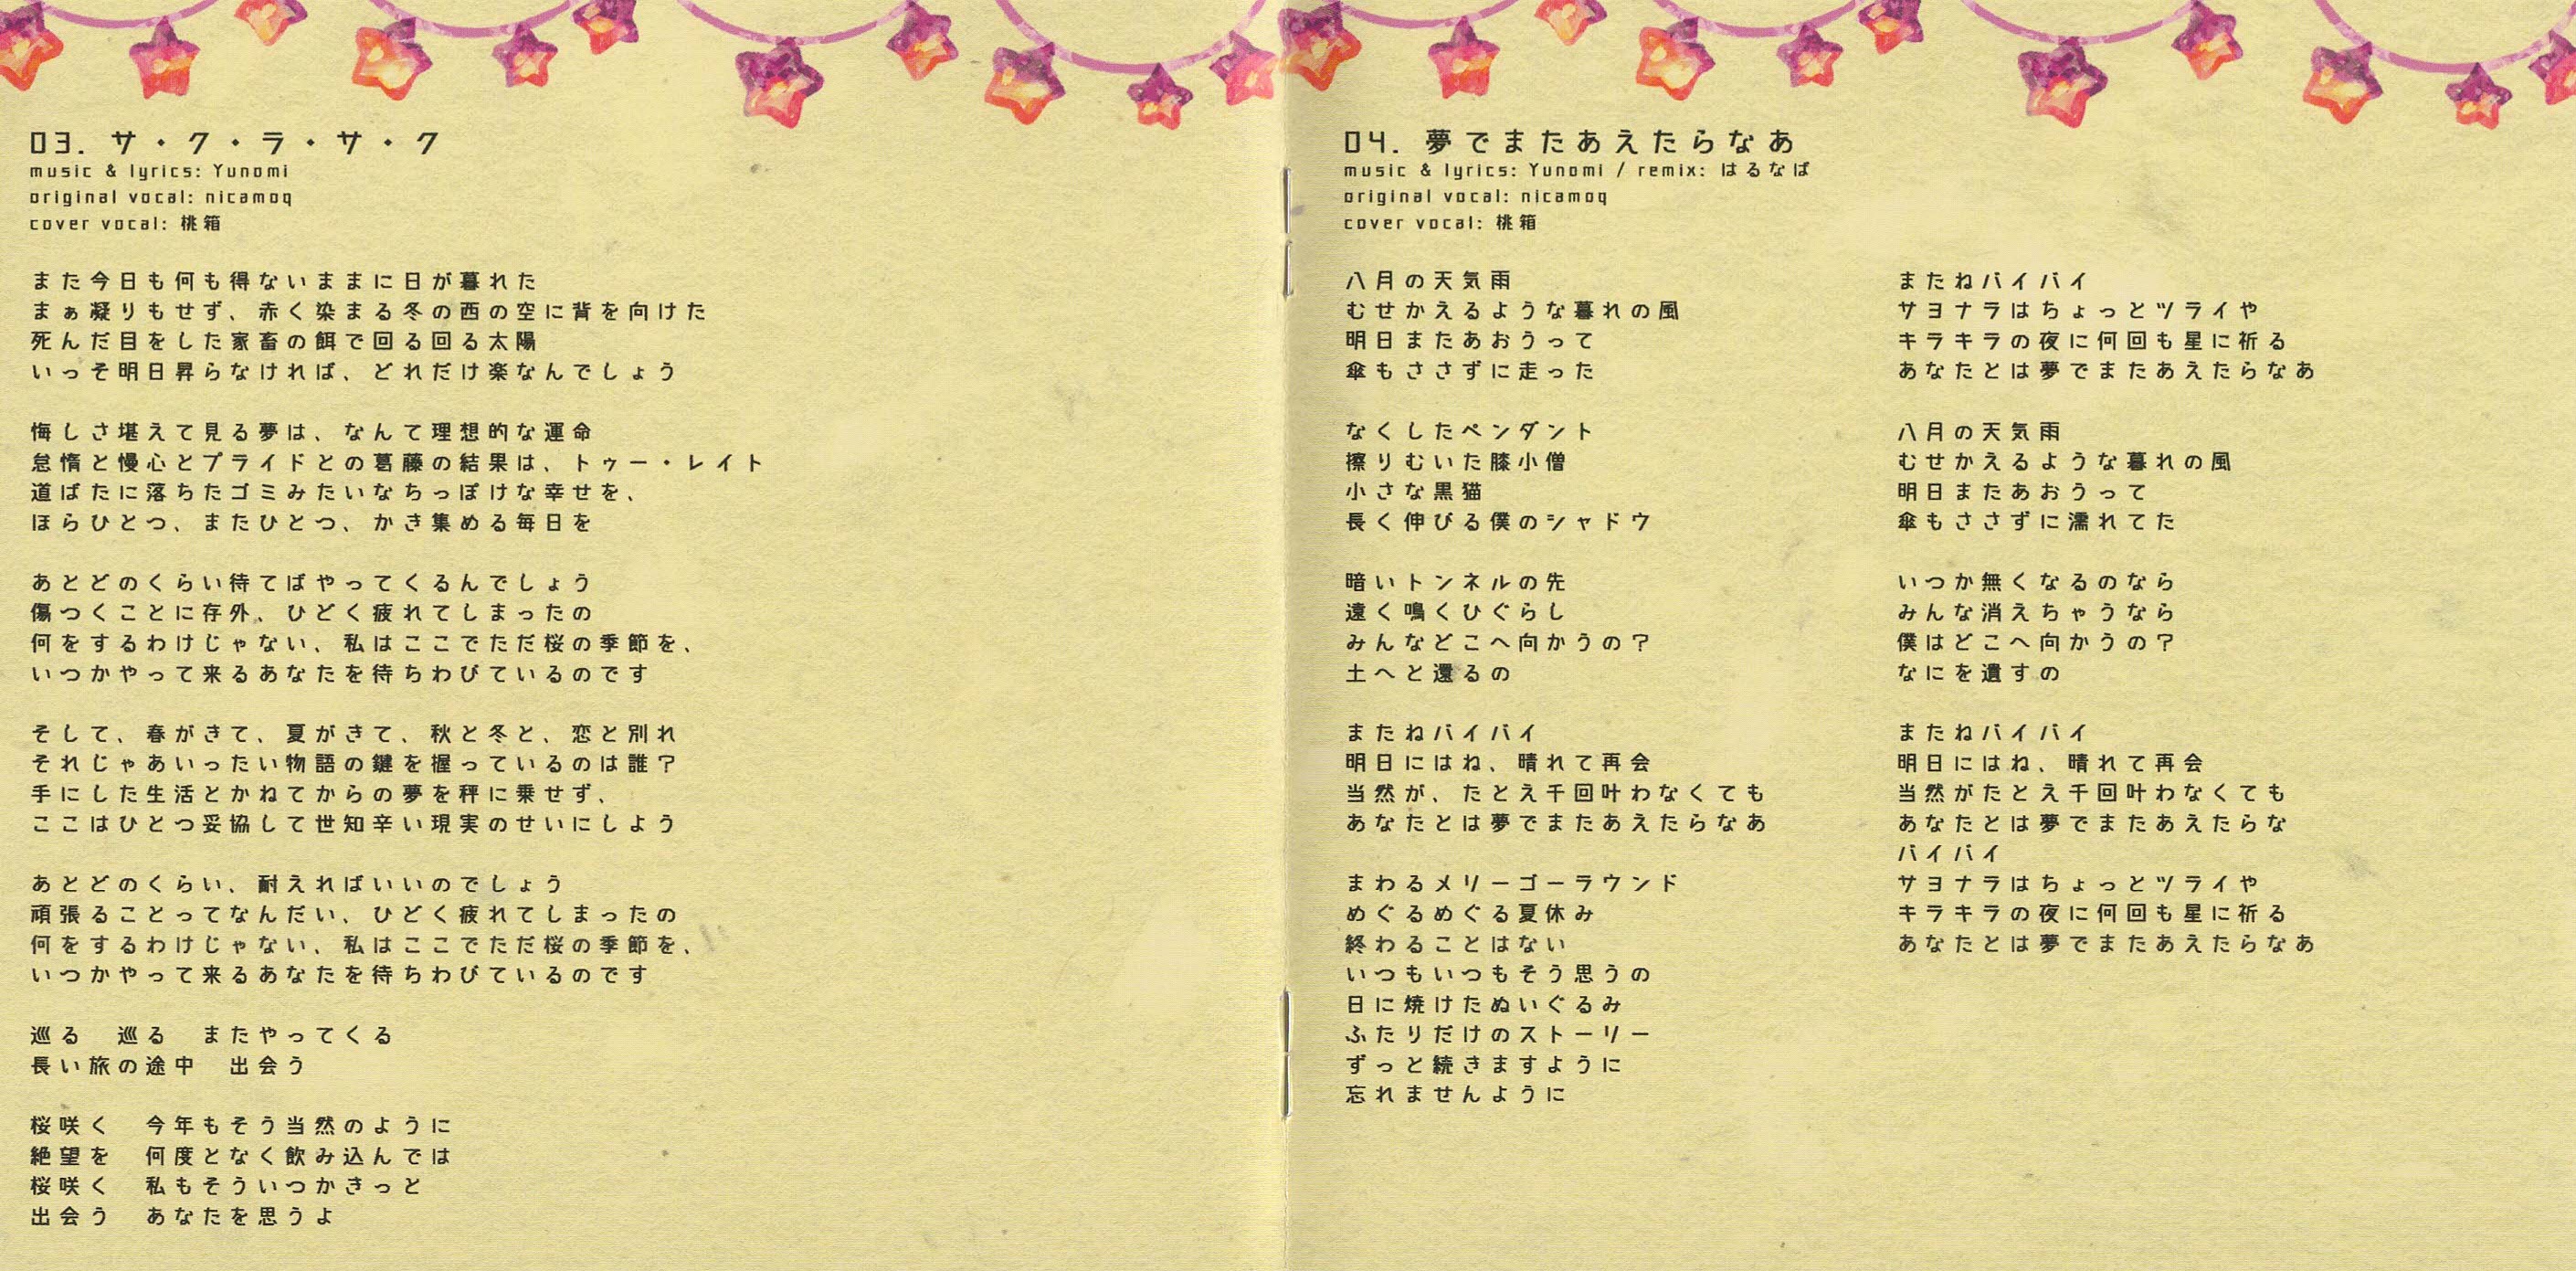 03. サ・ク・ラ・サ・ク
music & lyrics: Yunomi
original vocal: nicamoq
cover vocal: 桃箱
また今日も何も得ないままに日が暮れた
まぁ凝りもせず、赤く染まる冬の西の空に背を向けた
死んだ目をした家畜の餌で回る回る太陽
いっそ明日昇らなければ、どれだけ楽なんでしょう
悔しさ堪えて見る夢は、なんて理想的な運命
怠惰と慢心とプライドとの葛藤の結果は、トゥー・レイト
道ばたに落ちたゴミみたいなちっぽけな幸せを、
ほらひとつ、またひとつ、かき集める毎日を
あとどのくらい待てばやってくるんでしょう
傷つくことに存外、ひどく疲れてしまったの
何をするわけじゃない、私はここでただ桜の季節を、
いつかやって来るあなたを待ちわびているのです
そして、春がきて、夏がきて、秋と冬と、恋と別れ
それじゃあいったい物語の鍵を握っているのは誰？
手にした生活とかねてからの夢を秤に乗せず、
ここはひとつ妥協して世知辛い現実のせいにしよう
あとどのくらい、耐えればいいのでしょう
頑張ることってなんだい、ひどく疲れてしまったの
何をするわけじゃない、私はここでただ桜の季節を、
いつかやって来るあなたを待ちわびているのです
巡る　巡る　またやってくる
長い旅の途中　出会う
桜咲く　今年もそう当然のように
絶望を　何度となく飲み込んでは
桜咲く　私もそういつかきっと
出会う　あなたを思うよ
04. 夢でまたあえたらなあ
music & lyrics: Yunomi / remix: はるなば
original vocal: nicamoq
cover vocal: 桃箱
八月の天気雨
むせかえるような暮れの風
明日またあおうって
傘もささずに走った
なくしたペンダント
擦りむいた膝小僧
小さな黒猫
長く伸びる僕のシャドウ
暗いトンネルの先
遠く鳴くひぐらし
みんなどこへ向かうの？
土へと還るの
またねバイバイ
明日にはね、晴れて再会
当然が、たとえ千回叶わなくても
あなたとは夢でまたあえたらなあ
まわるメリーゴーラウンド
めぐるめぐる夏休み
終わることはない
いつもいつもそう思うの
日に焼けたぬいぐるみ
ふたりだけのストーリー
ずっと続きますように
忘れませんように
またねバイバイ
サヨナラはちょっとツライや
キラキラの夜に何回も星に祈る
あなたとは夢でまたあえたらなあ
八月の天気雨
むせかえるような暮れの風
明日またあおうって
傘もささずに濡れてた
いつか無くなるのなら
みんな消えちゃうなら
僕はどこへ向かうの？
なにを遺すの
またねバイバイ
明日にはね、晴れて再会
当然がたとえ千回叶わなくても
あなたとは夢でまたあえたらな
バイバイ
サヨナラはちょっとツライや
キラキラの夜に何回も星に祈る
あなたとは夢でまたあえたらなあ